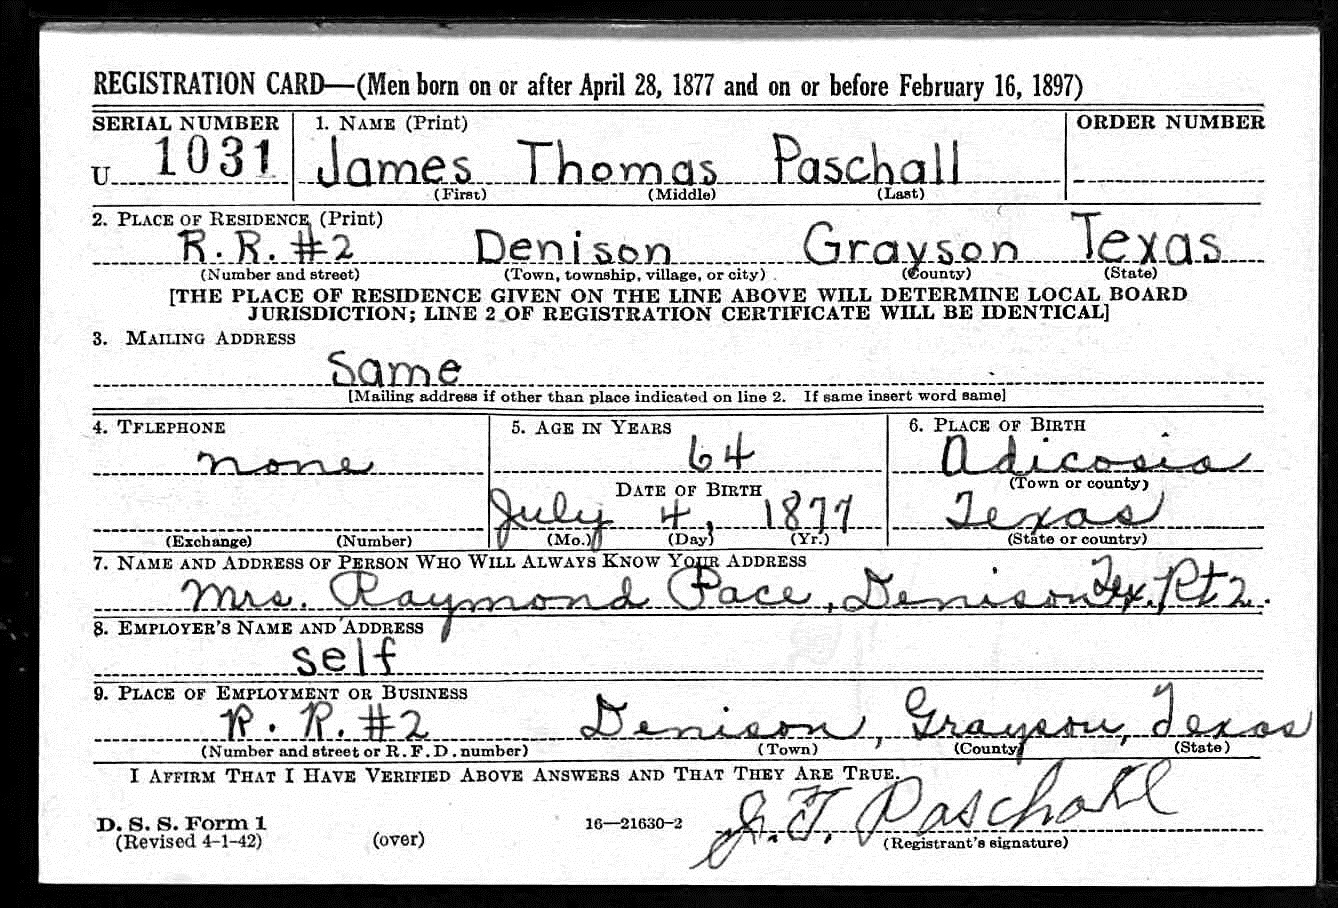 REGISTRATION CARD—(Men born on or after April 28, 1877 and on or before February 16, 1897)
SERIAL NUMBER 1. NAME (Print) ORDER NUMBER
U 1031 James Thomas Paschall
(First) (Middle) (Last)
2. PLACE OF RESIDENCE (Print)
R. R. #2 Denison Grayson Texas
(Number and street) (Town, township, village, or city) (County) (State)
[THE PLACE OF RESIDENCE GIVEN ON THE LINE ABOVE WILL DETERMINE LOCAL BOARD
JURISDICTION; LINE 2 OF REGISTRATION CERTIFICATE WILL BE IDENTICAL]
3. MAILING ADDRESS
Same
[Mailing address if other than place indicated on line 2. If same insert word same]
4. TELEPHONE 5. AGE IN YEARS 6. PLACE OF BIRTH
none 64 Adicosia
DATE OF BIRTH (Town or county)
July 4, 1877 Texas
(Exchange) (Number) (Mo.) (Day) (Yr.) (State or country)
7. NAME AND ADDRESS OF PERSON WHO WILL ALWAYS KNOW YOUR ADDRESS
Mrs. Raymond Pace, Denison Tex. Rt 2.
8. EMPLOYER'S NAME AND ADDRESS
self
9. PLACE OF EMPLOYMENT OR BUSINESS
R. R. #2 Denison, Grayson, Texas
(Number and street or R. F. D. number) (Town) (County) (State)
I AFFIRM THAT I HAVE VERIFIED ABOVE ANSWERS AND THAT THEY ARE TRUE.
J. T. Paschall
D. S. S. Form 1 16—21630-2
(Revised 4-1-42) (over) (Registrant's signature)